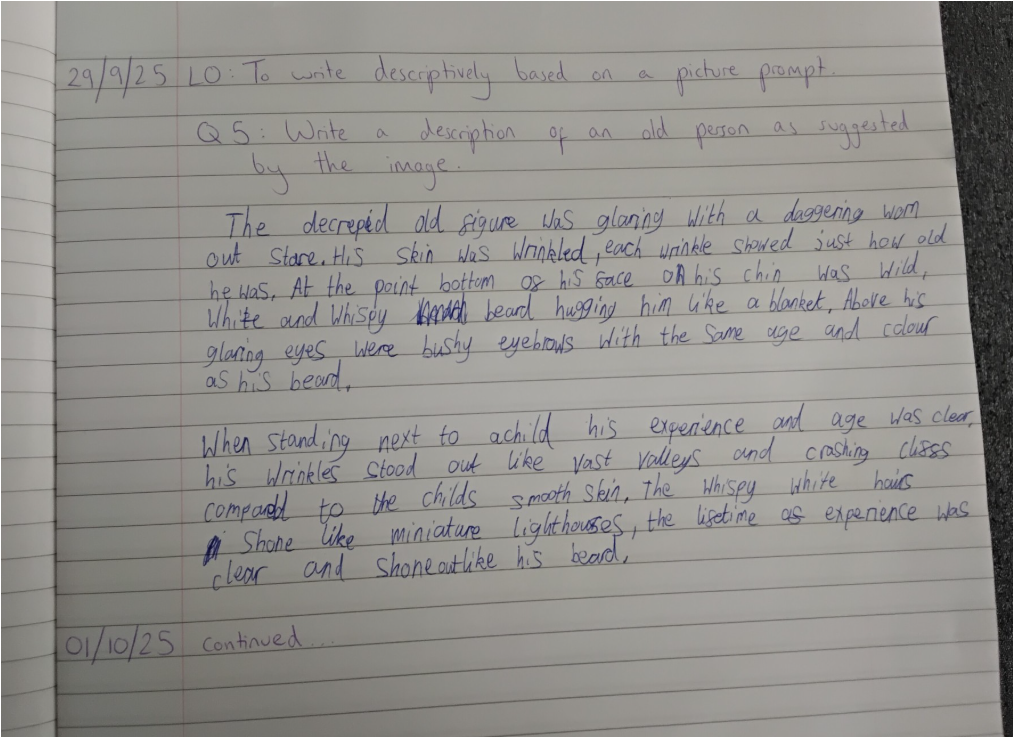 29/9/25 LO: To write descriptively based on a picture prompt.
Q5: Write a description of an old person as suggested
by the image.
The decrepid old figure was glaring with a daggering worn
out stare. His skin was wrinkled, each wrinkle showed just how old
he was. At the point bottom of his face on his chin was wild,
white and whispy beard hugging him like a blanket. Above his
glaring eyes were bushy eyebrows with the same age and colour
as his beard.
When standing next to a child his experience and age was clear,
his wrinkles stood out like vast valleys and crashing cliffs
compared to the childs smooth skin. The whispy white hairs
shone like miniature lighthouses, the lifetime of experience was
clear and shone out like his beard.
01/10/25 Continued...